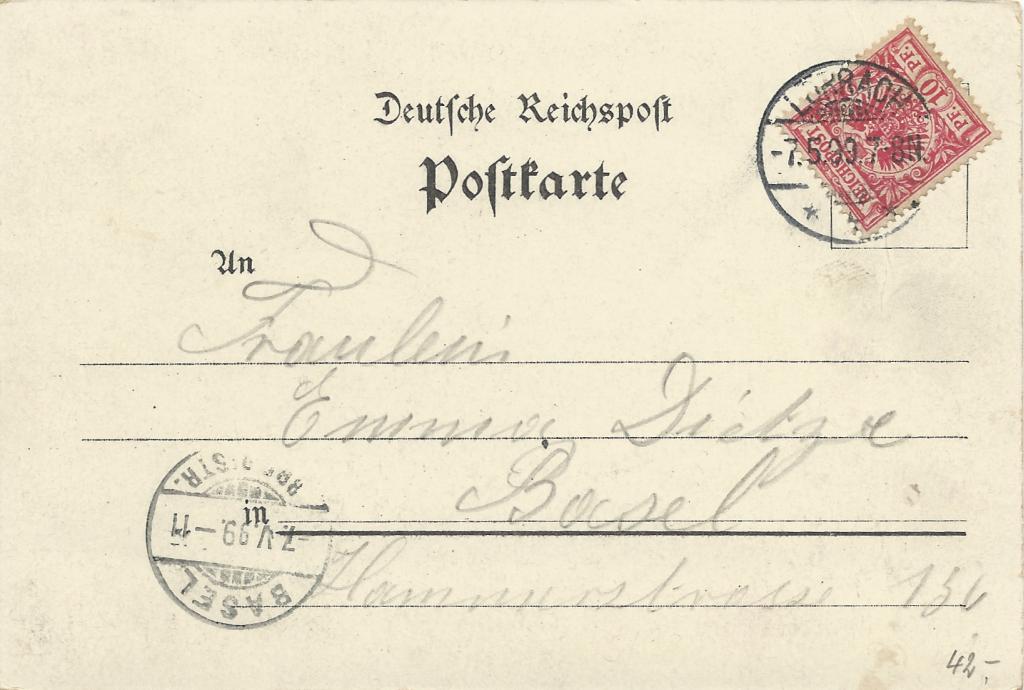 Deutsche Reichspost
Postkarte
LÖRRACH
7.5.99.7-8N.
10 PF. 10 PF.
REICHSPOST
An
Fräulein
Emma Dietze
Basel
in
Hammerstrasse 156
BASEL
-7.V.99.-11
BRF. DISTR.
42,-